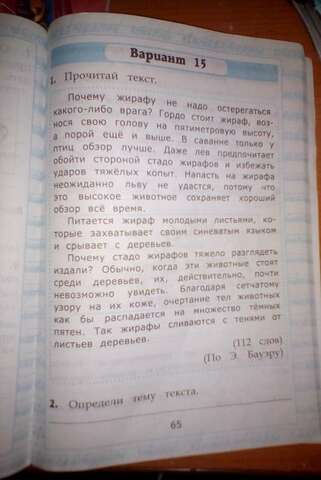 Вариант 15
1. Прочитай текст.
Почему жирафу не надо остерегаться
какого-либо врага? Гордо стоит жираф, воз-
нося свою голову на пятиметровую высоту,
а порой ещё и выше. В саванне только у
птиц обзор лучше. Даже лев предпочитает
обойти стороной стадо жирафов и избежать
ударов тяжёлых копыт. Напасть на жирафа
неожиданно льву не удастся, потому что
это высокое животное сохраняет хороший
обзор всё время.
Питается жираф молодыми листьями, ко-
торые захватывает своим синеватым языком
и срывает с деревьев.
Почему стадо жирафов тяжело разглядеть
издали? Обычно, когда эти животные стоят
среди деревьев, их, действительно, почти
невозможно увидеть. Благодаря сетчатому
узору на их коже, очертание тел животных
как бы распадается на множество тёмных
пятен. Так жирафы сливаются с тенями от
листьев деревьев.
(112 слов)
(По Э. Бауэру)
2. Определи тему текста.
65